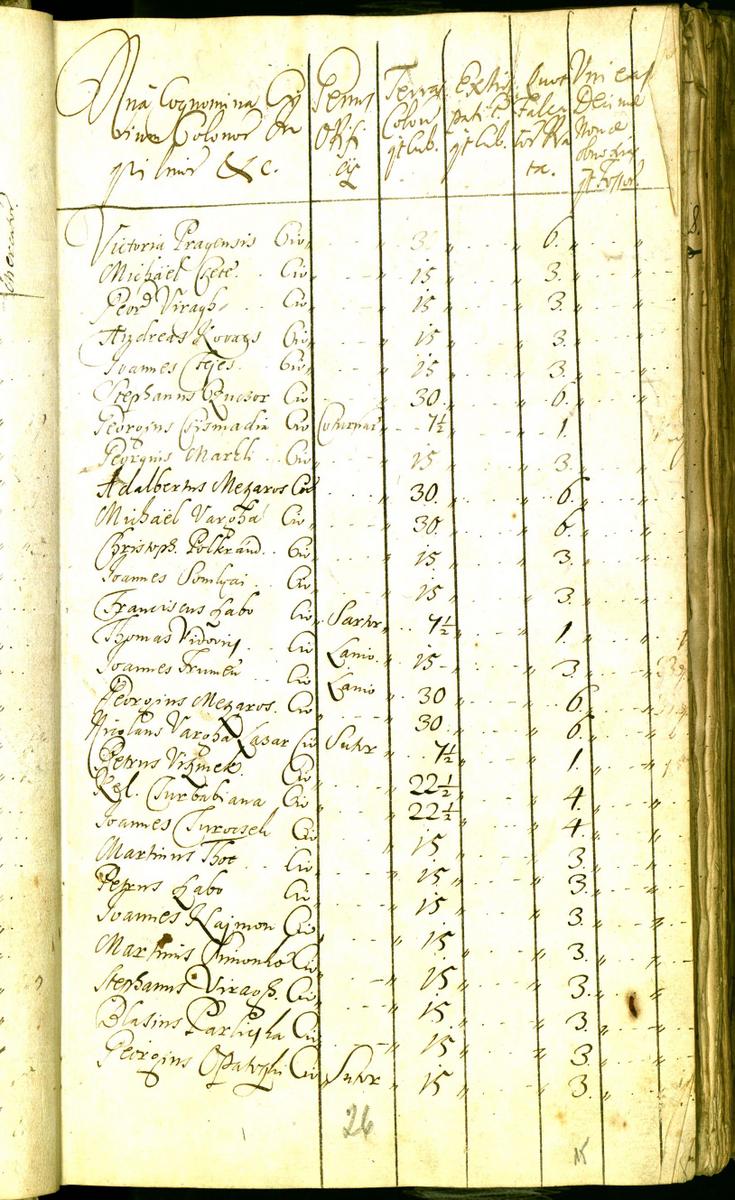 Cognomina Ci
vium Colonor In
quilinor &c.
Genus
Opifi
cij
Terra
Colon
jt Cub.
Exstir
pati
jt Cub.
Quot
Falca
tor Pra
ta.
Vineas
Decimae
Nonae
jt Fossor.
Victoria Pragensis Civ 3 6.
Michael Civ 15 3.
Geor Viragh Civ 15 3.
Andreas Kovacs Civ 15 3.
Joannes Civ 15 3.
Stephanus Civ 30 6.
Georgius Csismadia Civ Coturnar 7½ 1.
Georgius Markli Civ 15 3.
Adalbertus Mezaros Civ 30. 6.
Michael Vargha Civ 30. 6.
Christoph. Polkrand Civ 15. 3.
Joannes Somlyai Civ 15 3.
Franciscus Sabo Civ Sartor 7½ 1.
Thomas Civ Lanio 15 3.
Joannes Trumer Civ Lanio 30 6
Georgius Mezaros. Civ 30. 6.
Nicolaus Vargha Lazar Civ Sutor 7½ 1.
Petrus Civ 22½ 4.
Rel. Turbabiana Civ 22½ 4.
Joannes Civ 15 3.
Martinus Thot Civ 15 3.
Petrus Sabo Civ 15 3.
Joannes Klajmon Civ 15 3.
Martinus Simonko Civ 15 3.
Stephanus Viragh. Civ 15 3.
Blasius Civ 15 3.
Georgius Opatozki Civ Sutor 15 3.
26